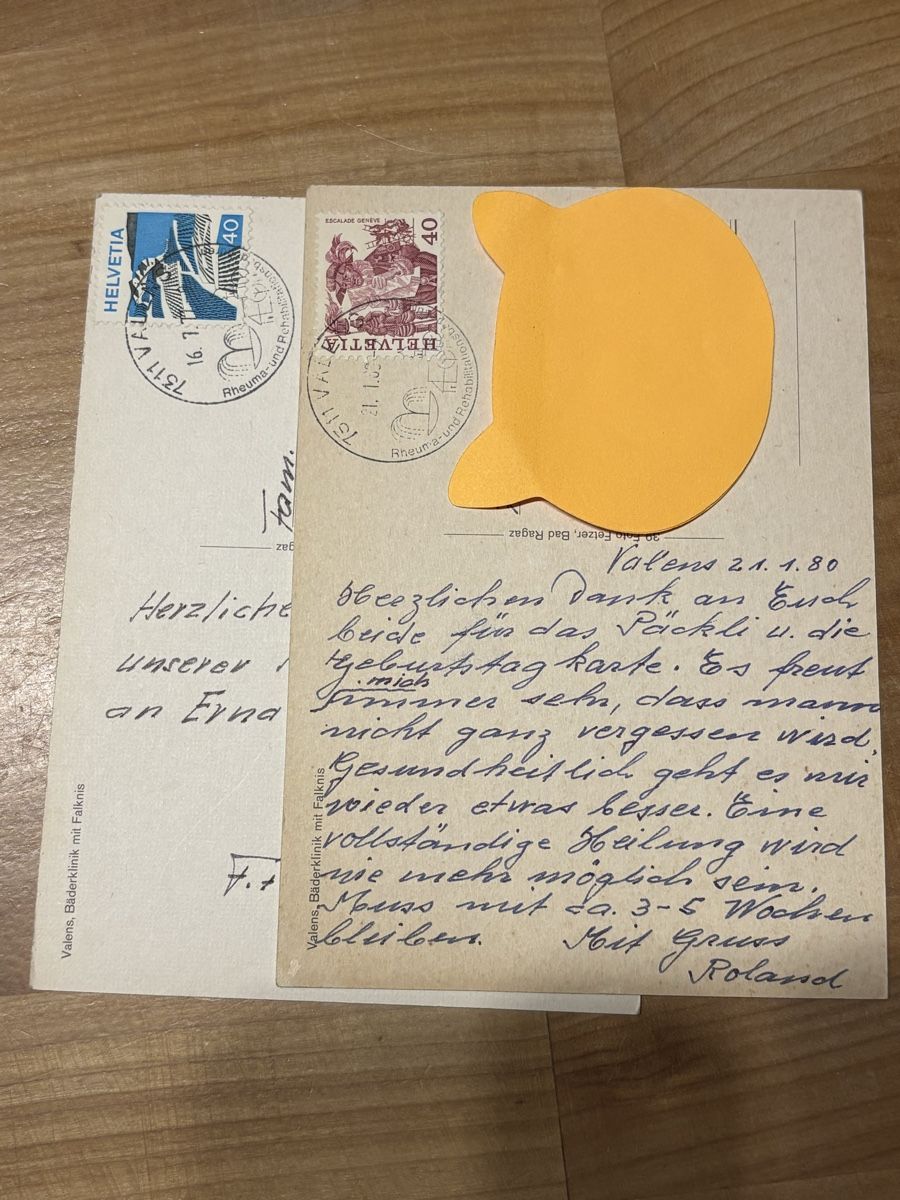 HELVETIA
40
7311 VAL
16.7.
Rheuma- und Rehabilitationsb
Fam.
Herzliche
unserer
an Erna
Valens, Bäderklinik mit Falknis
ESCALADE GENÈVE
40
HELVETIA
7311 VAL
21.1.80
Rheuma- und Rehabilitationsb
Foto Fetzer, Bad Ragaz
Valens 21.1.80
Heezlichen Dank an Euch
beide für das Päckli u. die
Geburtstagkarte. Es freut
mich
immer sehr, dass mann
nicht ganz vergessen wird.
Gesundheitlich geht es mir
wieder etwas besser. Eine
vollständige Heilung wird
nie mehr möglich sein.
Muss mit ca. 3-5 Wochen
bleiben. Mit Gruss
Roland
Valens, Bäderklinik mit Falknis